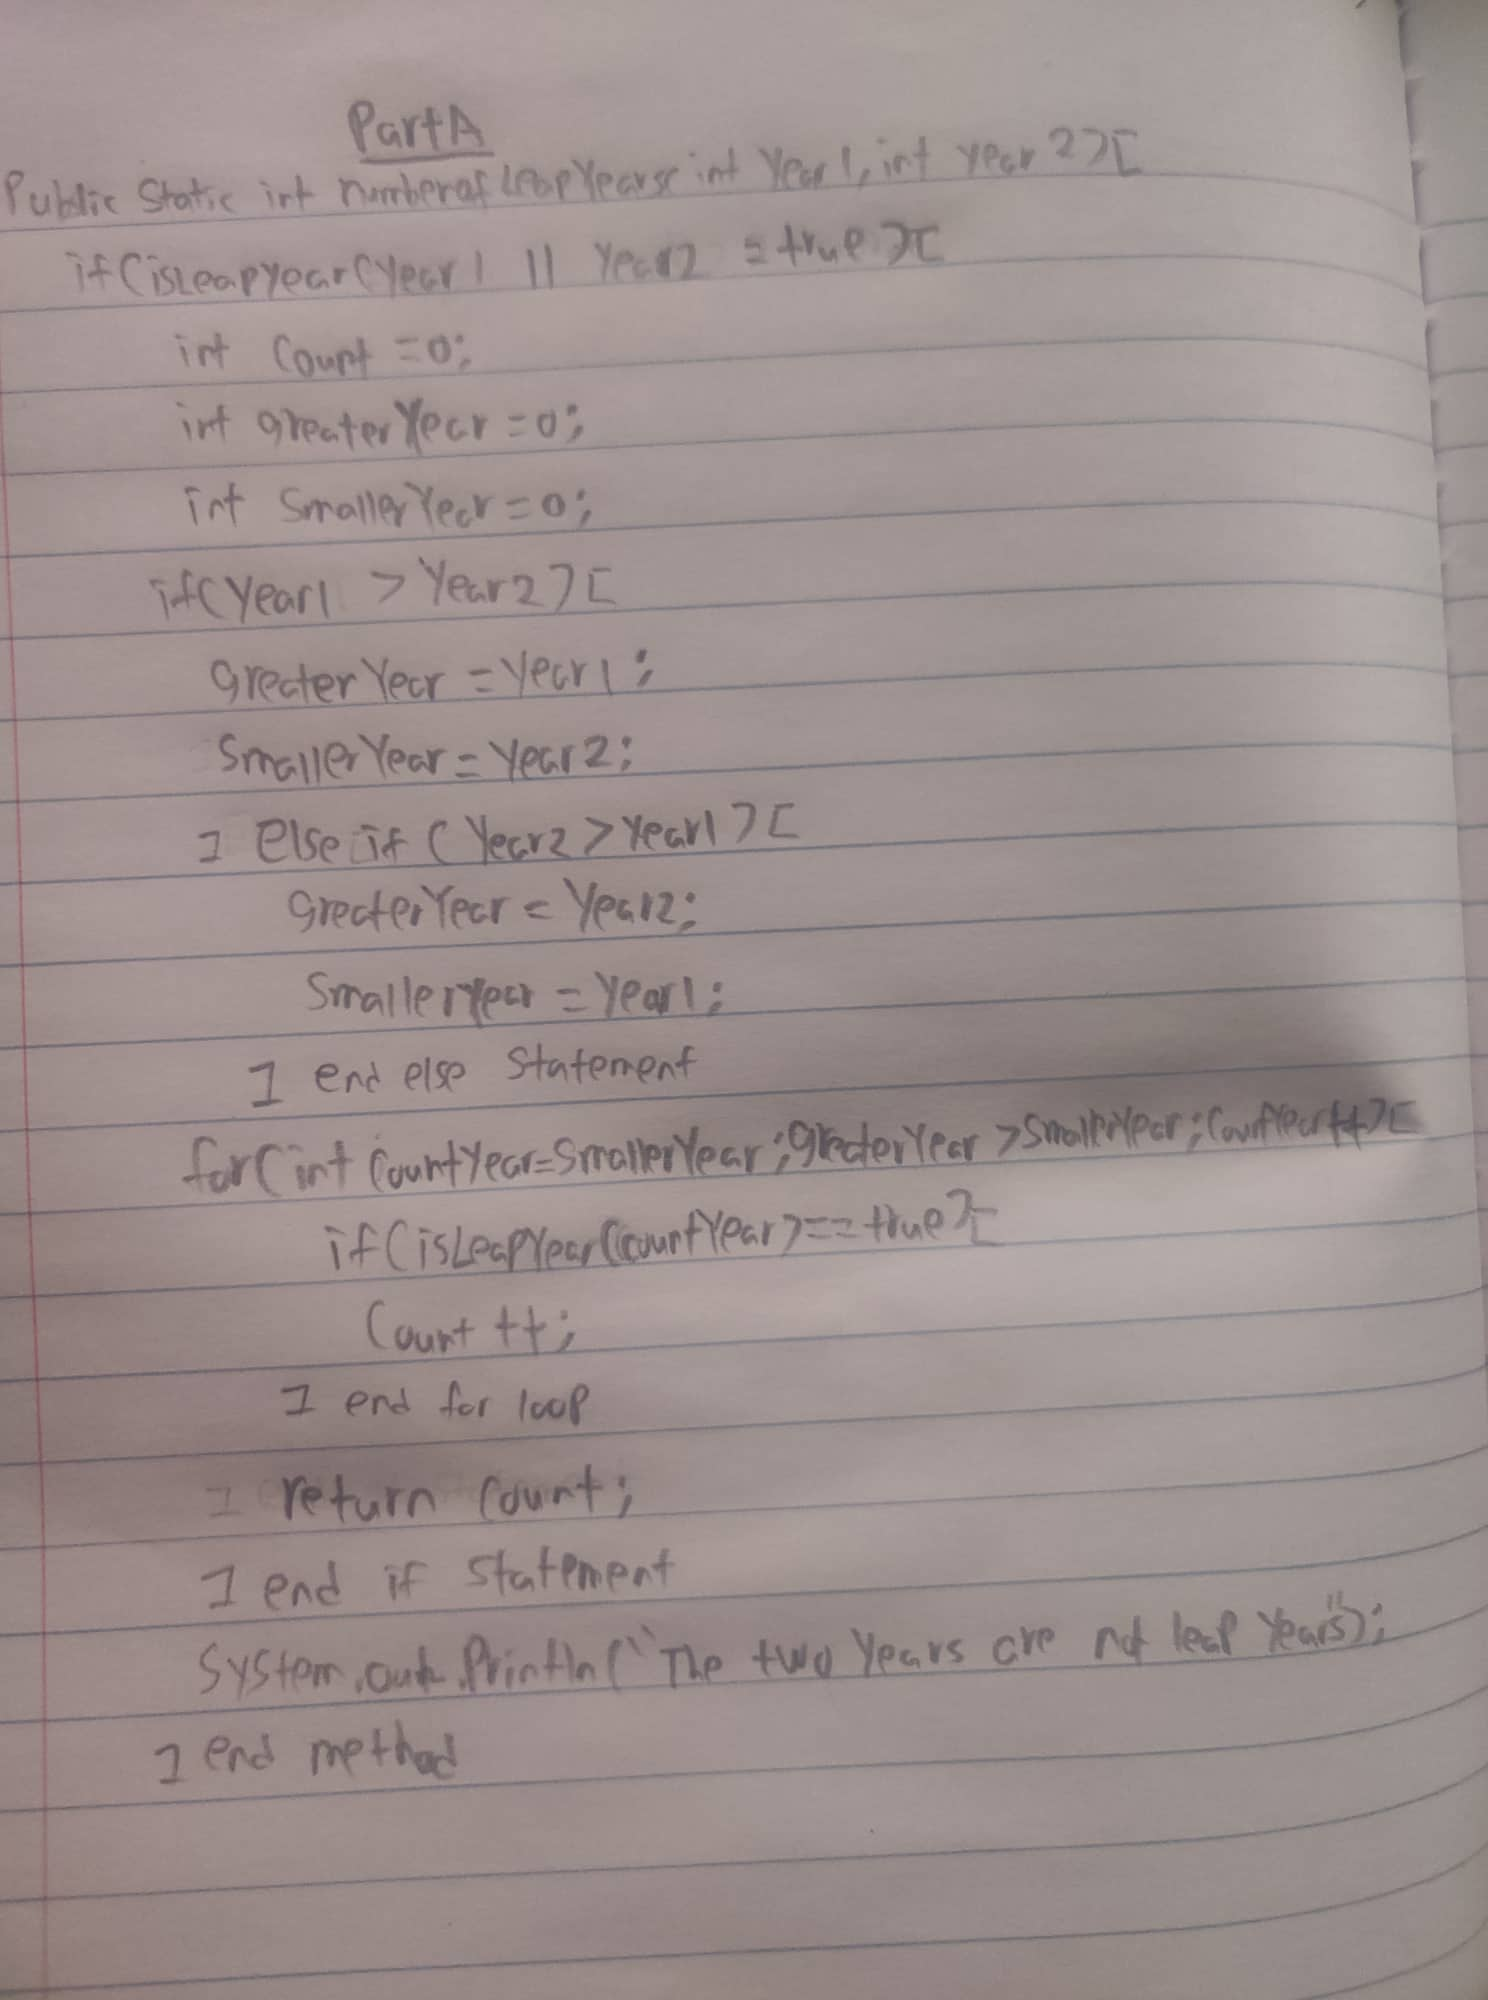 Part A
Public Static int numberof LeapYears( int Year 1, int year 2)[
if(isLeapyear(year 1 || Year2 = true)[
int Count = 0;
int greater Year = 0;
int Smaller Year = 0;
if(Year1 > Year2)[
greater Year = year1;
Smaller Year = Year2;
] Else if ( Year2 > Year1)[
greater Year = Year2;
Smalleryear = Year1;
] end else Statement
for(int CountYear=SmallerYear;greaterYear >SmallerYear;CountYear++)[
if(isLeapYear(CountYear)==true)[
Count ++;
] end for loop
] return Count;
] end if Statement
System.out.Println("The two Years are not leap Years");
] end method